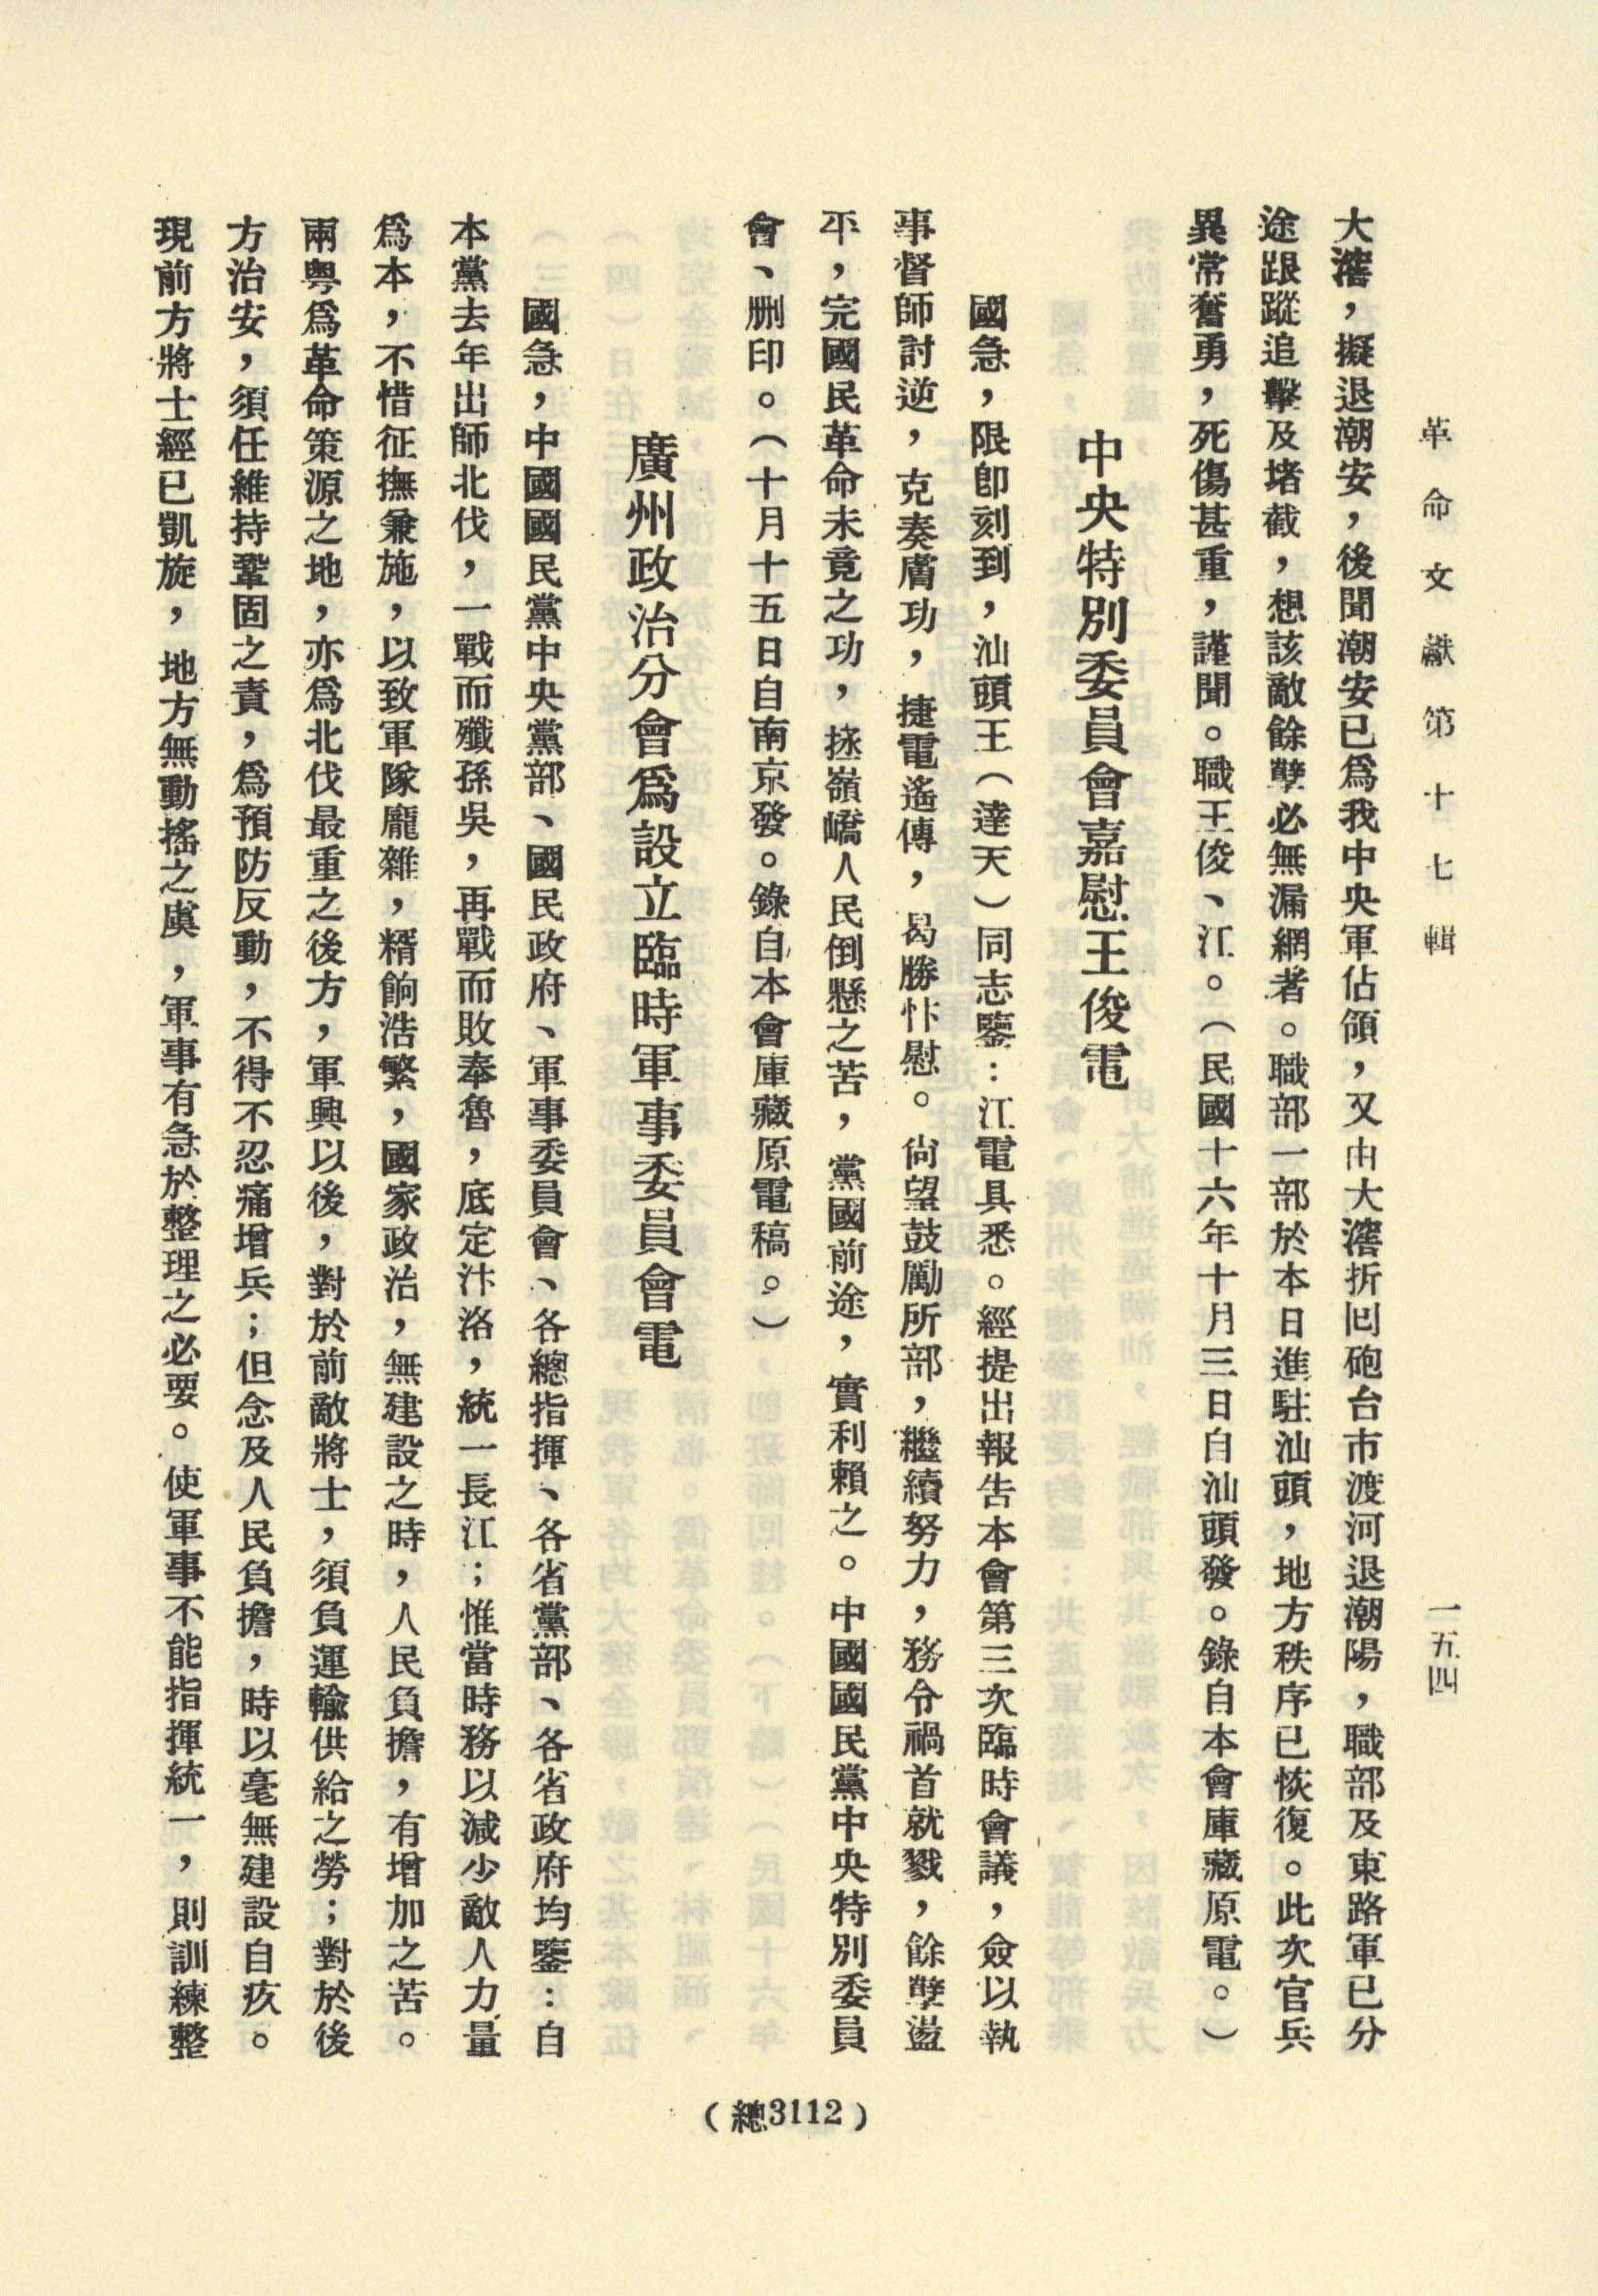 革命文獻第十七輯
一五四
大㵧，擬退潮安，後聞潮安已爲我中央軍佔領，又由大㵧折回砲台市渡河退潮陽，職部及東路軍已分
途跟蹤追擊及堵截，想該敵餘孽必無漏網者。職部一部於本日進駐汕頭，地方秩序已恢復。此次官兵
異常奮勇，死傷甚重，謹聞。職王俊、江。（民國十六年十月三日自汕頭發。錄自本會庫藏原電。）
中央特別委員會嘉慰王俊電
國急，限卽刻到，汕頭王（達天）同志鑒：江電具悉。經提出報告本會第三次臨時會議，僉以執
事督師討逆，克奏膚功，捷電遙傳，曷勝忭慰。尙望鼓勵所部，繼續努力，務令禍首就戮，餘孽盪
平，完國民革命未竟之功，拯嶺嶠人民倒懸之苦，黨國前途，實利賴之。中國國民黨中央特別委員
會、刪印。（十月十五日自南京發。錄自本會庫藏原電稿。）
廣州政治分會爲設立臨時軍事委員會電
國急，中國國民黨中央黨部、國民政府、軍事委員會、各總指揮、各省黨部、各省政府均鑒：自
本黨去年出師北伐，一戰而殲孫吳，再戰而敗奉魯，底定汴洛，統一長江；惟當時務以減少敵人力量
爲本，不惜征撫兼施，以致軍隊龐雜，糈餉浩繁，國家政治，無建設之時，人民負擔，有增加之苦。
兩粵爲革命策源之地，亦爲北伐最重之後方，軍興以後，對於前敵將士，須負運輸供給之勞；對於後
方治安，須任維持鞏固之責，爲預防反動，不得不忍痛增兵；但念及人民負擔，時以毫無建設自疚。
現前方將士經已凱旋，地方無動搖之虞，軍事有急於整理之必要。使軍事不能指揮統一，則訓練整
（總3112）